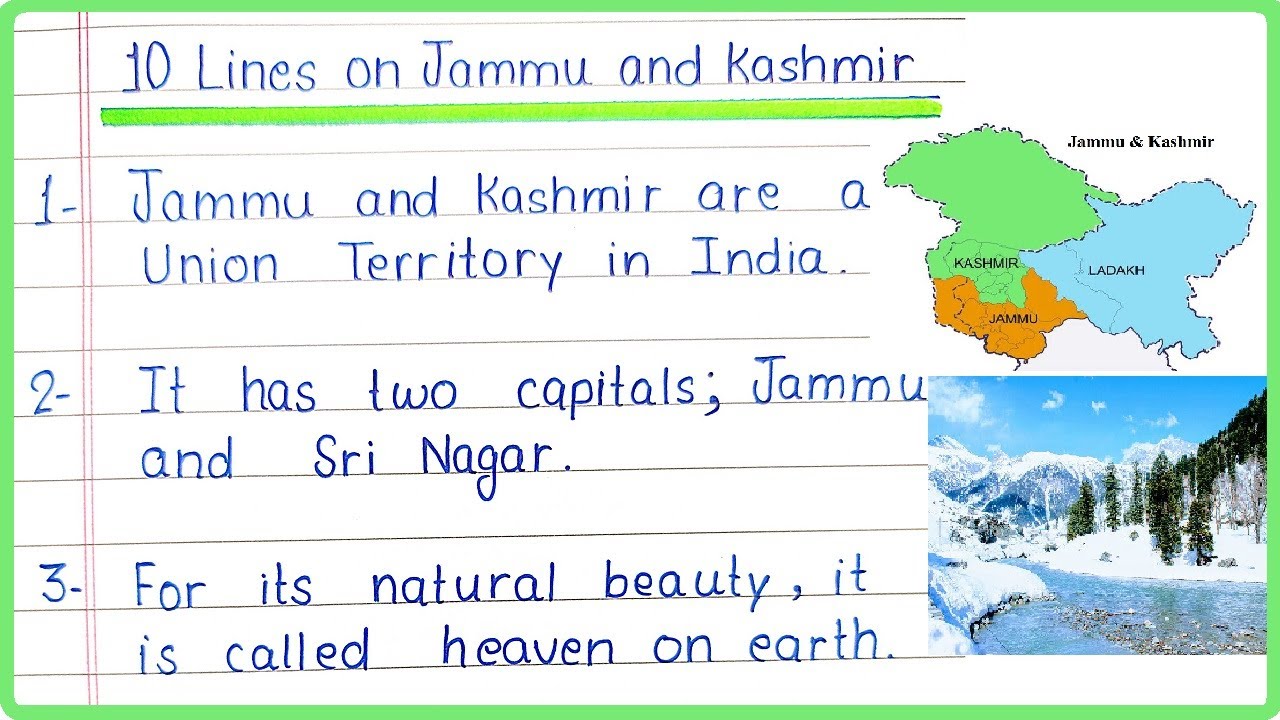 10 Lines on Jammu and Kashmir
1- Jammu and Kashmir are a
Union Territory in India.
2- It has two capitals; Jammu
and Sri Nagar.
3- For its natural beauty, it
is called heaven on earth.
Jammu & Kashmir
KASHMIR
LADAKH
JAMMU